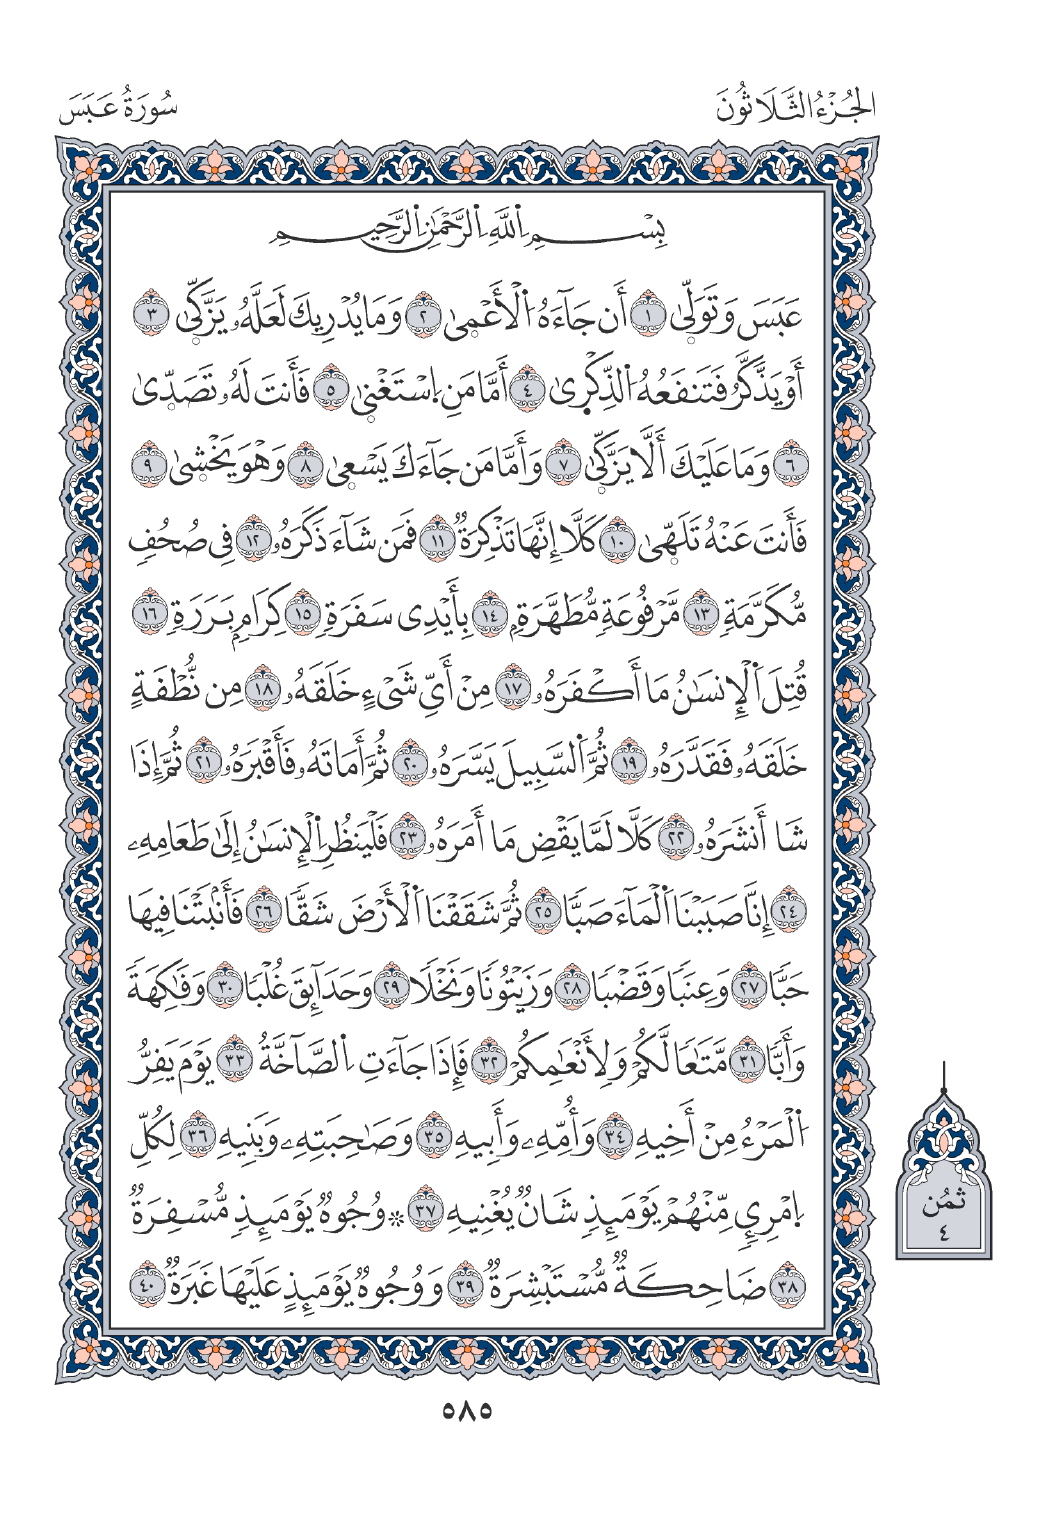 الجُزْءُ الثَّلَاثُونَ
سُورَةُ عَبَسَ
بِسْمِ اِ۬للَّهِ اِ۬لرَّحْمَٰنِ اِ۬لرَّحِيمِ
عَبَسَ وَتَوَلّ۪ىٰ ١ أَن جَآءَهُ اُ۬لْأَعْم۪ىٰ ٢ وَمَا يُدْرِيكَ لَعَلَّهُۥ يَزَّكّ۪ىٰ ٣
أَوْ يَذَّكَّرُ فَتَنفَعُهُ اُ۬لذِّكْر۪ىٰ ٤ أَمَّا مَنِ اِ۪سْتَغْن۪ىٰ ٥ فَأَنتَ لَهُۥ تَصَدّ۪ىٰ
٦ وَمَا عَلَيْكَ أَلَّا يَزَّكّ۪ىٰ ٧ وَأَمَّا مَن جَآءَكَ يَسْع۪ىٰ ٨ وَهْوَ يَخْش۪ىٰ ٩
فَأَنتَ عَنْهُ تَلَهّ۪ىٰ ١٠ كَلَّا إِنَّهَا تَذْكِرَةٌ ١١ فَمَن شَآءَ ذَكَرَهُۥ ١٢ فِى صُحُفٍ
مُّكَرَّمَةٍ ١٣ مَّرْفُوعَةٍ مُّطَهَّرَةٍۭ ١٤ بِأَيْدِى سَفَرَةٍ ١٥ كِرَامٍۭ بَرَرَةٍ ١٦
قُتِلَ اَ۬لْإِنسَٰنُ مَا أَكْفَرَهُۥ ١٧ مِنْ أَىِّ شَىْءٍ خَلَقَهُۥ ١٨ مِن نُّطْفَةٍ
خَلَقَهُۥ فَقَدَّرَهُۥ ١٩ ثُمَّ اَ۬لسَّبِيلَ يَسَّرَهُۥ ٢٠ ثُمَّ أَمَاتَهُۥ فَأَقْبَرَهُۥ ٢١ ثُمَّ إِذَا
شَا أَنشَرَهُۥ ٢٢ كَلَّا لَمَّا يَقْضِ مَا أَمَرَهُۥ ٢٣ فَلْيَنظُرِ اِ۬لْإِنسَٰنُ إِلَىٰ طَعَامِهِۦ
٢٤ إِنَّا صَبَبْنَا اَ۬لْمَآءَ صَبًّا ٢٥ ثُمَّ شَقَقْنَا اَ۬لْأَرْضَ شَقًّا ٢٦ فَأَنۢبَتْنَا فِيهَا
حَبًّا ٢٧ وَعِنَبًا وَقَضْبًا ٢٨ وَزَيْتُونًا وَنَخْلًا ٢٩ وَحَدَآئِقَ غُلْبًا ٣٠ وَفَٰكِهَةً
وَأَبًّا ٣١ مَّتَٰعًا لَّكُمْ وَلِأَنْعَٰمِكُمْ ٣٢ فَإِذَا جَآءَتِ اِ۬لصَّآخَّةُ ٣٣ يَوْمَ يَفِرُّ
اُ۬لْمَرْءُ مِنْ أَخِيهِ ٣٤ وَأُمِّهِۦ وَأَبِيهِ ٣٥ وَصَٰحِبَتِهِۦ وَبَنِيهِ ٣٦ لِكُلِّ
اِ۪مْرِئٍ مِّنْهُمْ يَوْمَئِذٍ شَانٌ يُغْنِيهِ ٣٧ ۞ وُجُوهٌ يَوْمَئِذٍ مُّسْفِرَةٌ
٣٨ ضَاحِكَةٌ مُّسْتَبْشِرَةٌ ٣٩ وَوُجُوهٌ يَوْمَئِذٍ عَلَيْهَا غَبَرَةٌ ٤٠
ثُمُن
٤
٥٨٥